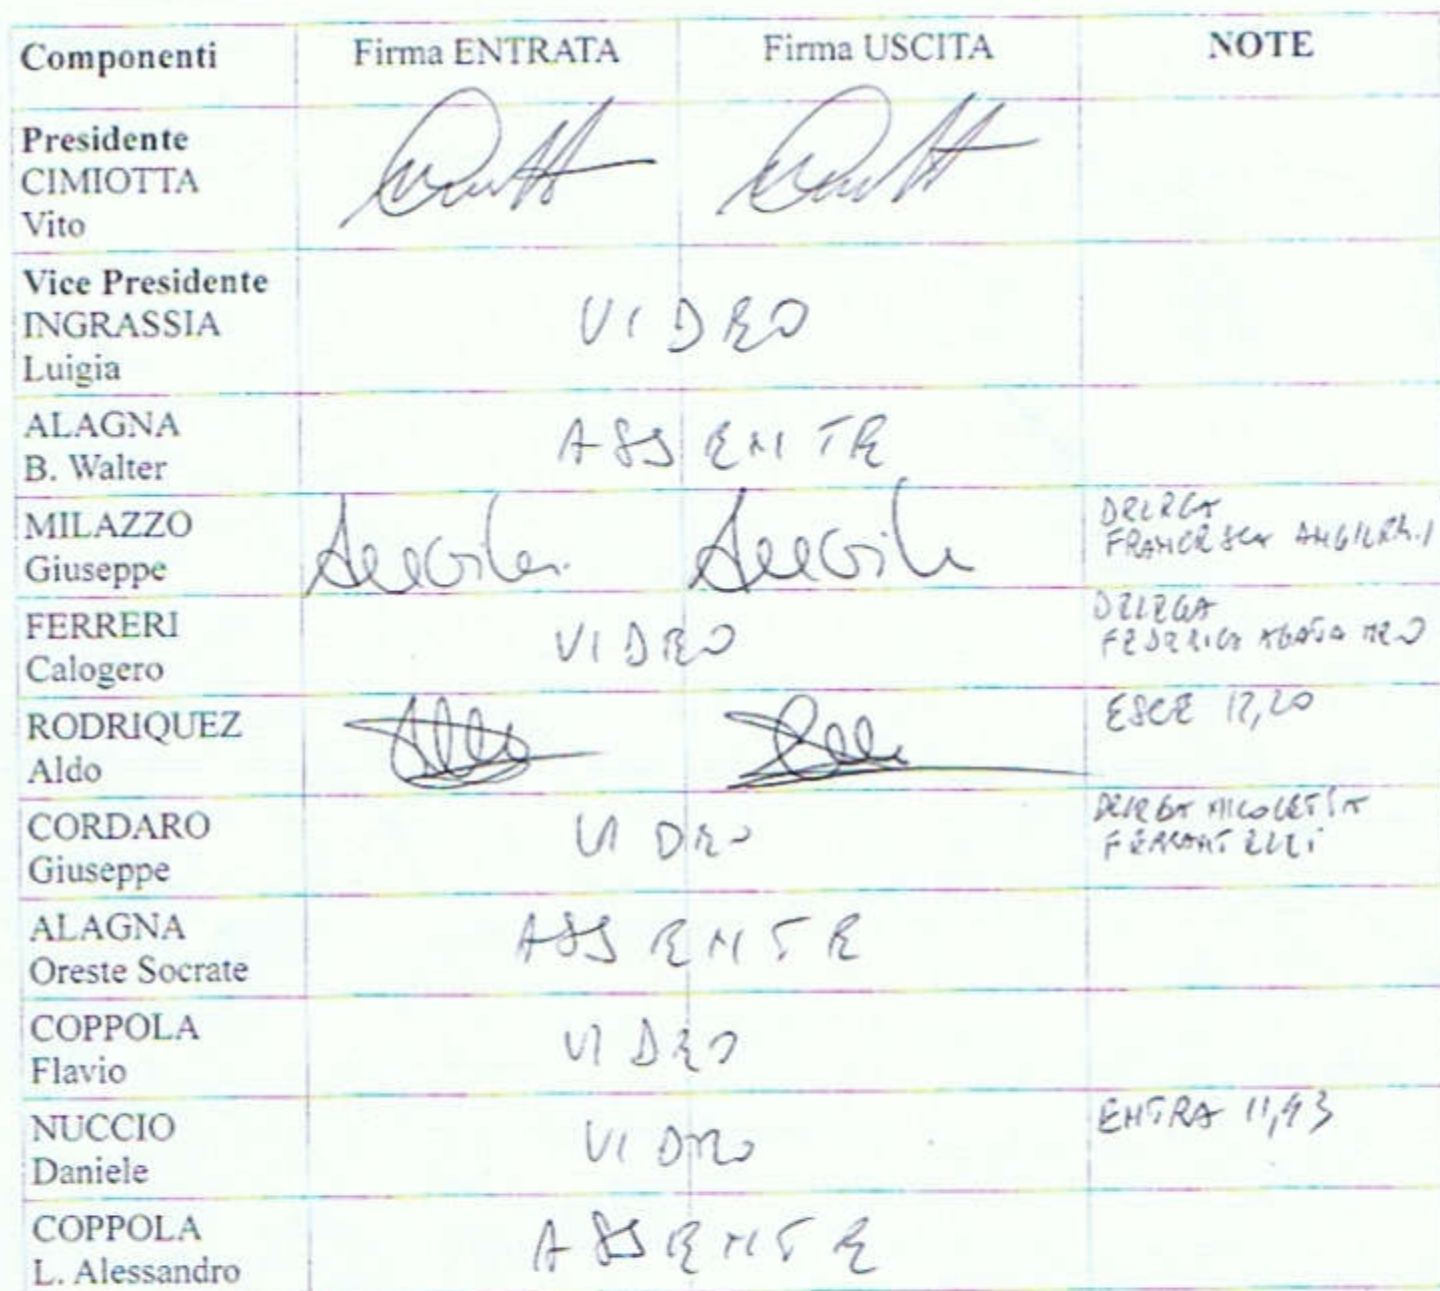 Componenti Firma ENTRATA Firma USCITA NOTE
Presidente
CIMIOTTA
Vito
Vice Presidente
INGRASSIA
Luigia
VIDEO
ALAGNA
B. Walter
ASSENTE
MILAZZO
Giuseppe
DELEGA
FRANCESCA
FERRERI
Calogero
VIDEO
DELEGA
FEDERICA MEO
RODRIQUEZ
Aldo
ESCE 12,20
CORDARO
Giuseppe
VIDEO
DELEGA NICOLETTA
FERRANTELLI
ALAGNA
Oreste Socrate
ASSENTE
COPPOLA
Flavio
VIDEO
NUCCIO
Daniele
VIDEO
ENTRA 11,43
COPPOLA
L. Alessandro
ASSENTE